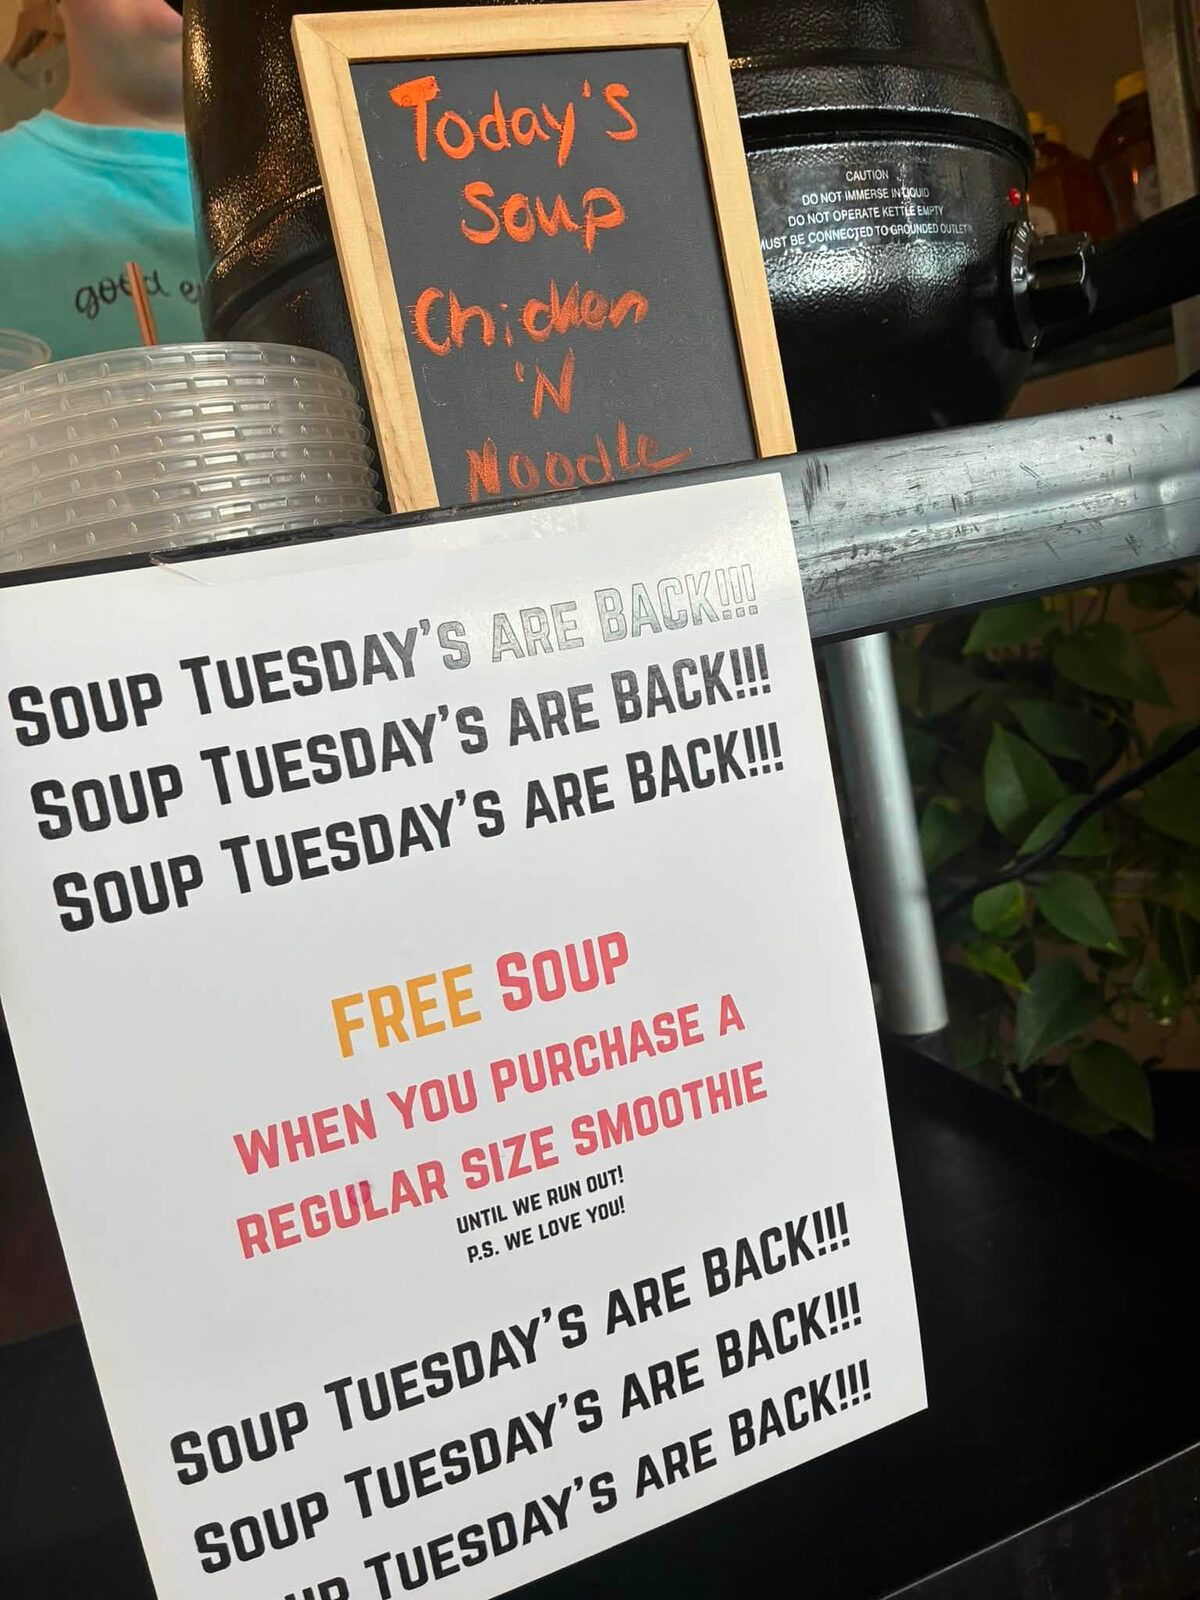 Today's
Soup
Chicken
'N
Noodle
CAUTION
DO NOT IMMERSE IN LIQUID
DO NOT OPERATE KETTLE EMPTY
MUST BE CONNECTED TO GROUNDED OUTLET
good
SOUP TUESDAY'S ARE BACK!!!
SOUP TUESDAY'S ARE BACK!!!
SOUP TUESDAY'S ARE BACK!!!
FREE SOUP
WHEN YOU PURCHASE A
REGULAR SIZE SMOOTHIE
UNTIL WE RUN OUT!
P.S. WE LOVE YOU!
SOUP TUESDAY'S ARE BACK!!!
SOUP TUESDAY'S ARE BACK!!!
SOUP TUESDAY'S ARE BACK!!!